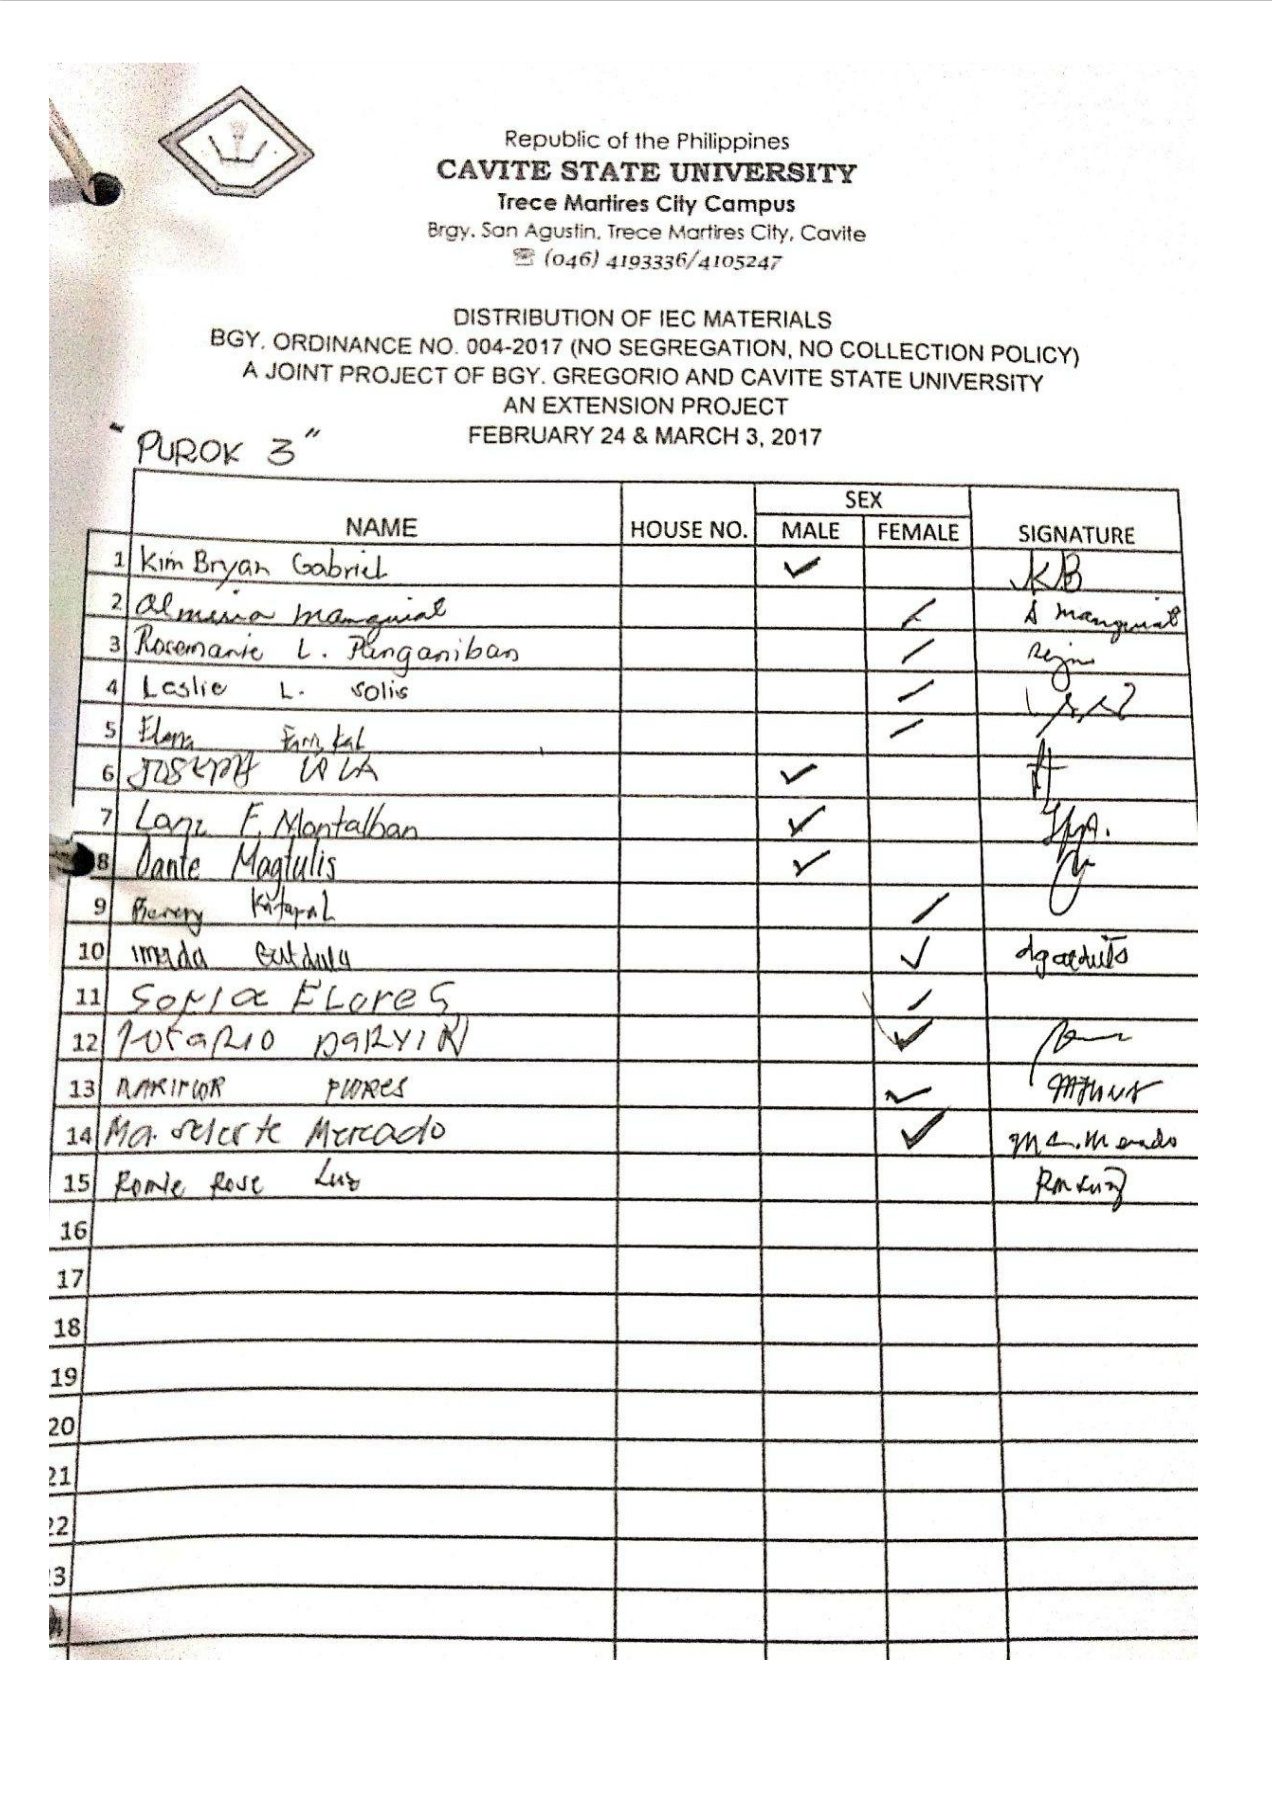 Republic of the Philippines
CAVITE STATE UNIVERSITY
Trece Martires City Campus
Brgy. San Agustin, Trece Martires City, Cavite
☏ (046) 4193336/4105247
DISTRIBUTION OF IEC MATERIALS
BGY. ORDINANCE NO. 004-2017 (NO SEGREGATION, NO COLLECTION POLICY)
A JOINT PROJECT OF BGY. GREGORIO AND CAVITE STATE UNIVERSITY
AN EXTENSION PROJECT
FEBRUARY 24 & MARCH 3, 2017
"PUROK 3"
SEX
NAME HOUSE NO. MALE FEMALE SIGNATURE
1 Kim Bryan Gabriel ✓ KB
2 Manguiat Manguiat
3 Rosemarie L. Panganiban
4 Leslie L. Solis
5 Elena
6 JOSEPH ✓
7 F. Montalban ✓
8 Dante Magtulis ✓
9
10 Gatdula ✓
11 SoFIa FLoreS
12 DARYIN ✓
13 FLORES ✓
14 Ma. Mercado ✓
15 Rose Luz
16
17
18
19
20
21
22
3